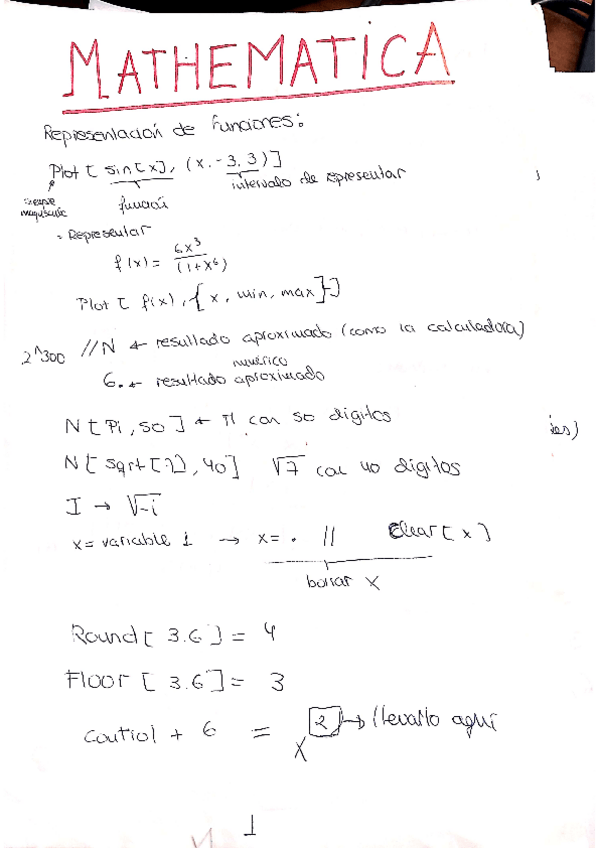 MATHEMATICA
Representación de funciones:
Plot [ sin[x], (x.-3,3)]
intervalo de representar
siempre
mayúscula
función
- Representar
f(x) = 6x³/(1+x⁶)
Plot [ f(x), { x, min, max}]
2^300 //N ← resultado aproximado (como la calculadora)
numérico
6. ← resultado aproximado
N[Pi, 50] ← π con 50 dígitos
ies)
N[ sqrt[7], 40] √7 con 40 dígitos
I → √-i
x = variable 1 → x = . // Clear[x]
borrar x
Round[ 3.6 ] = 4
Floor [ 3.6 ] = 3
control + 6 = x² → llevarlo aquí
1